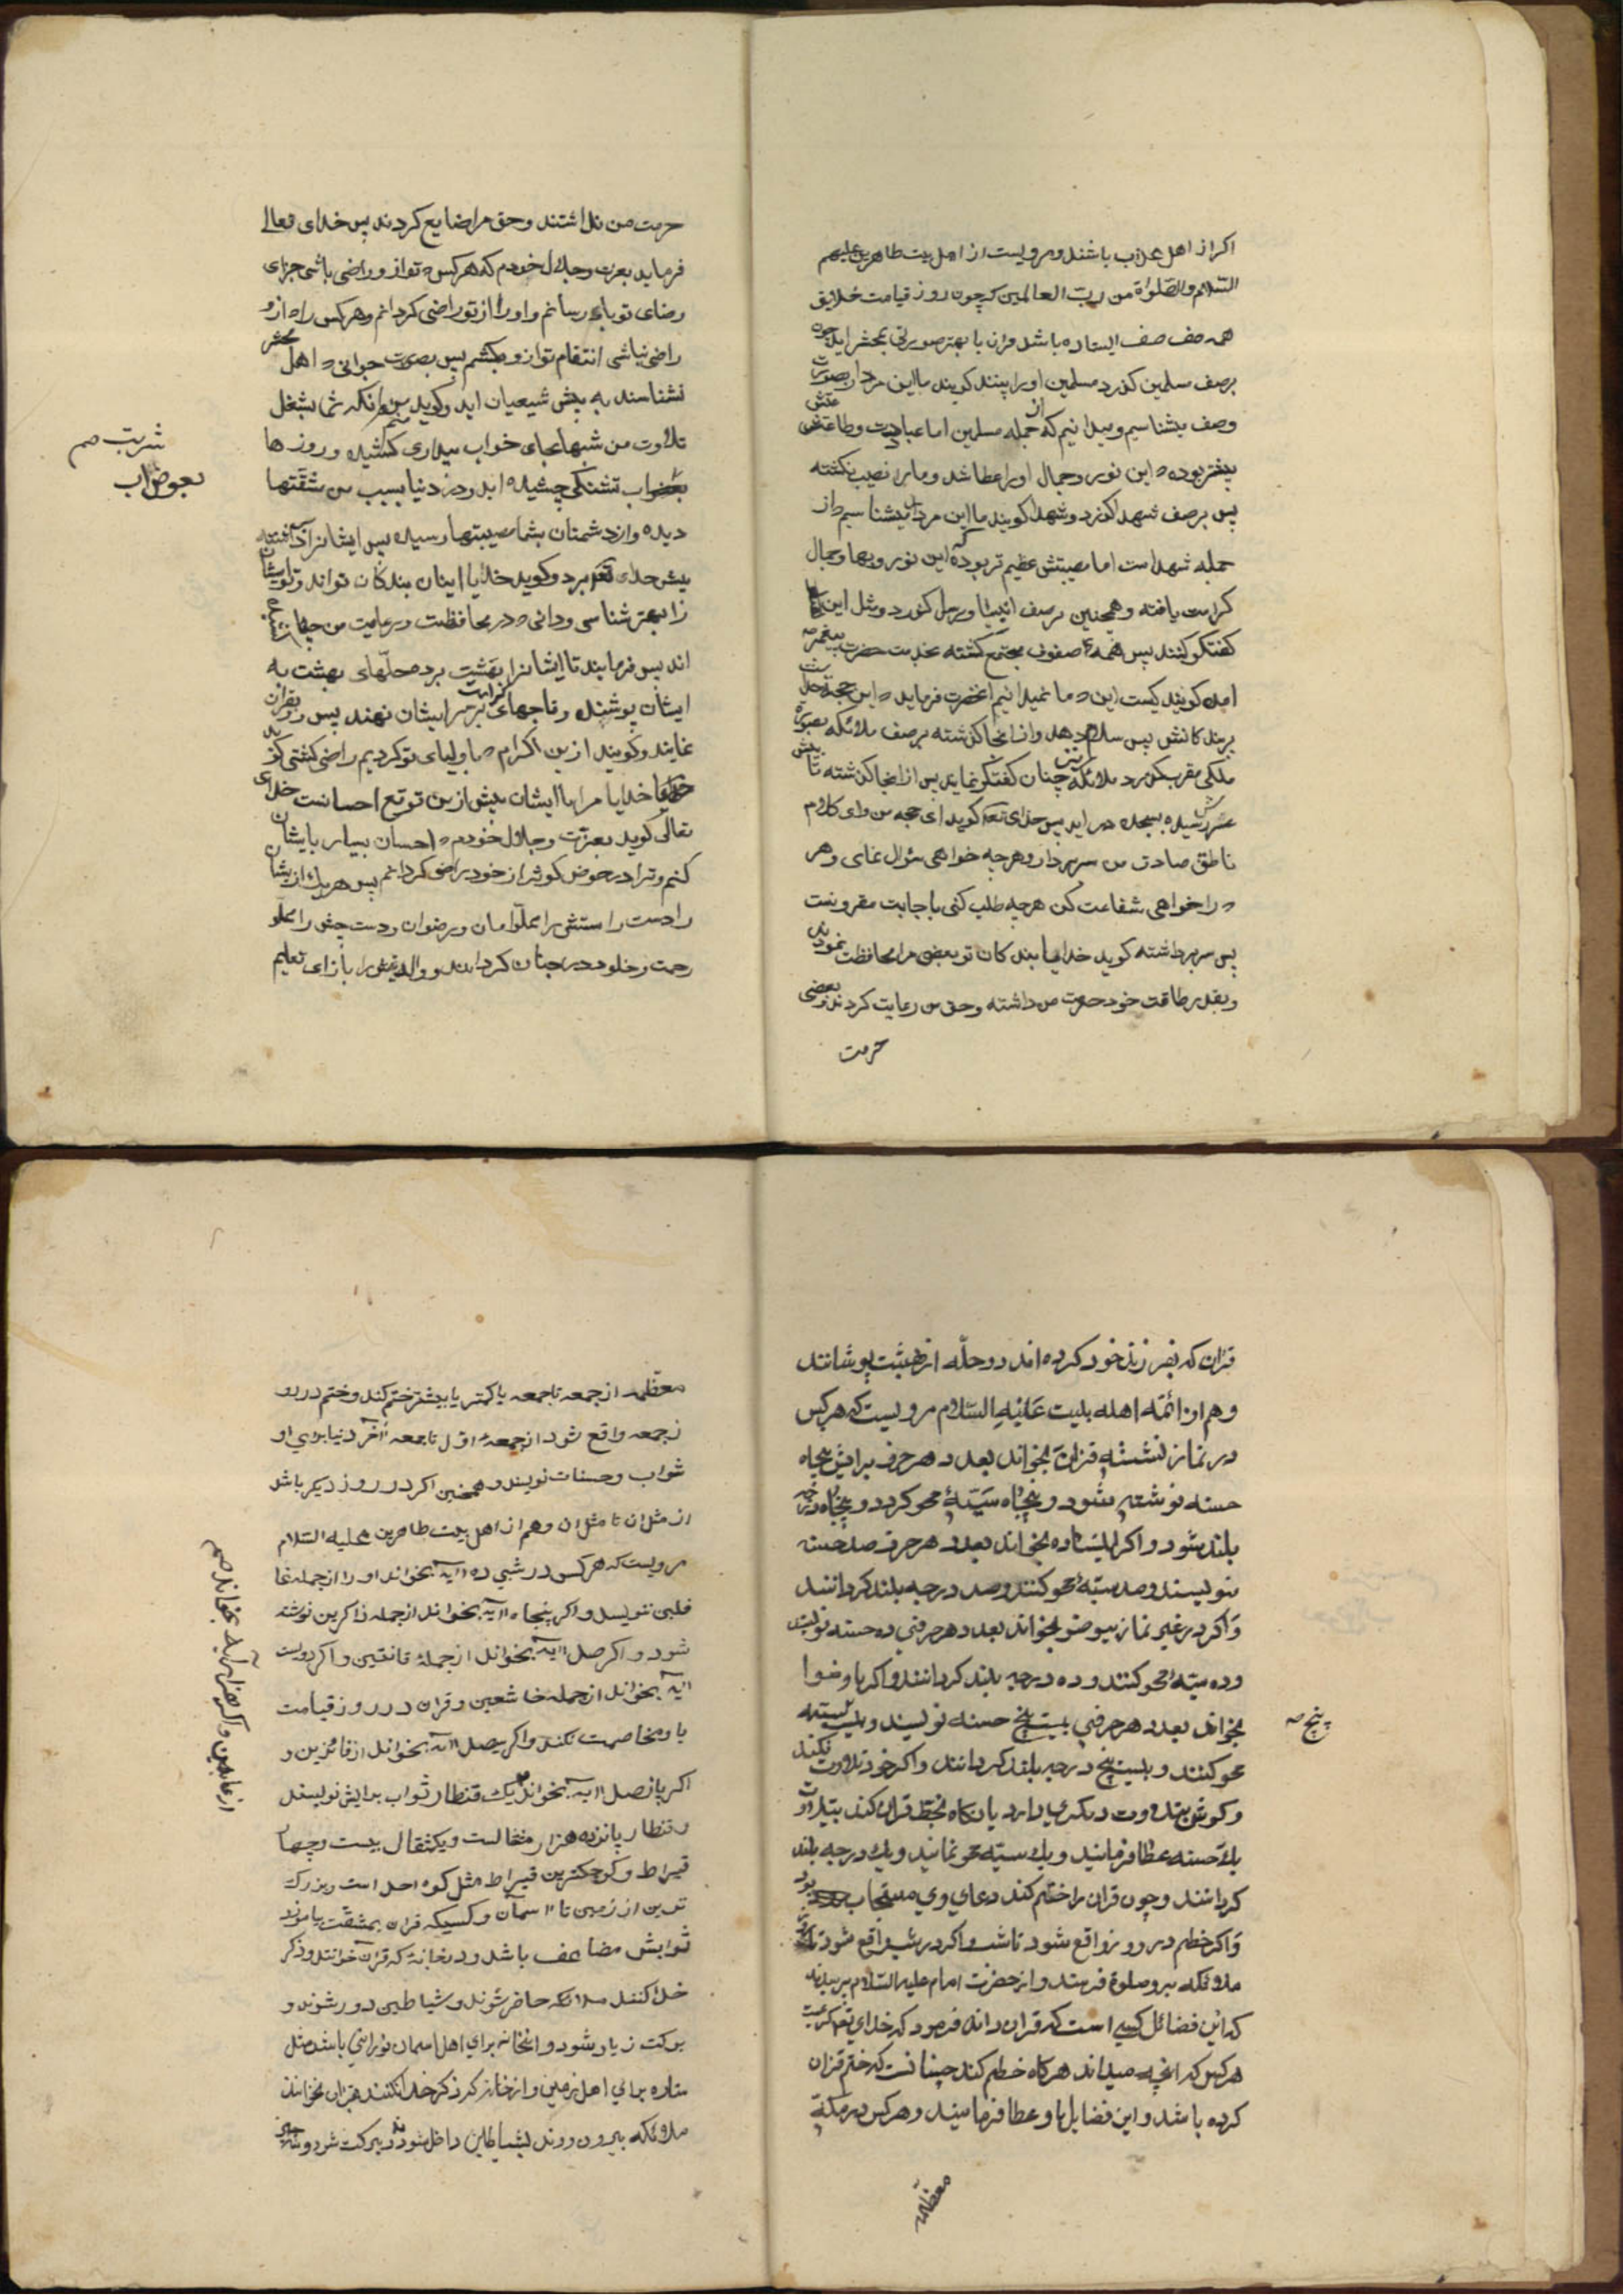 اکر از اهل عذاب باشند و مرویست از اهل بیت طاهرین علیهم
السّلام و الصّلواة من ربّ العالمین که چون روز قیامت خلایق
همه صف صف ایستاده باشد قران با بهتر صورتی بمحشر اید چون
برصف مسلمین کذرد مسلمین او را بینند کویند ما این مرد را بصورت
وصف میشناسیم و میدانیم که از جمله مسلمین اما عبادت و طاعتش
بیشتر بوده که این نور و جمال او را عطا شد و ما را نصیب نکشته
پس برصف شهدا کذرد و شهدا کویند ما این مرد را میشناسیم که از
جمله شهداست اما مصیبتش عظیم تر بوده که این نور و بها و جمال
کرامت یافته و همچنین برصف انبیا و رسل کذرد و مثل این
کفتکو کنند پس همه صفوف مجتمع کشته بخدمت حضرت پیغمبر
امده کویند کیست این که ما نمیدانیم انحضرت فرماید که این حجة خداست
بربندکانش پس سلام دهد و از انجا کذشته برصف ملائکه بصورة
ملکی مقرب کذرد ملائکه نیز چنان کفتکو نمایند پس از انجا کذشته تا پیش
عرش رسیده بسجده در اید پس خدای تعه کوید ای حجه من و ای کلام
ناطق صادق من سر بردار و هرچه خواهی سؤال نمای و هر
که را خواهی شفاعت کن هرچه طلب کنی باجابت مقرونست
پس سر برداشته کوید خدایا بندکان تو بعضی مرا محافظت نمودند
و بقدر طاقت خود حرمت من داشته و حق من رعایت کردند و بعضی
حرمت
حرمت من نداشتند و حق مرا ضایع کردند پس خدای تعالی
فرماید بعزت و جلال خودم که هرکس که تو از و راضی باشی جزای
رضای تو باو رسانم و او را از تو راضی کردانم و هرکس را که از و
راضی نباشی انتقام تو از و بکشم پس بصورت جوانی که اهل محشر
نشناسند به پیش شیعیان اید و کوید منم انکه شما بشغل
تلاوت من شبها بجای خواب بیداری کشیده و روزها
تشنکی چشیده اید و در دنیا بسبب من مشقتها
شربت صح
بعوض اب
دیده و از دشمنان بشما مصیبتها رسیده پس ایشانرا
پیش خدای تعه برد و کوید خدایا اینان بندکان تواند و تو ایشان
را بهتر شناسی و دانی که در محافظت و رعایت من
اند پس فرمایند تا ایشانرا ببهشت برد و حلّهای بهشت به
ایشان پوشند و تاجهای کرامت بر سر ایشان نهند پس رو بقران
نمایند و کویند ازین اکرام که باولیای تو کردیم راضی کشتی کوید
خدایا مرا با ایشان بیش ازین توقع احسانست خدای
تعالی کوید بعزّت و جلال خودم که احسان بسیار بایشان
کنم و ترا در حوض کوثر از خود راضی کردانم پس هریک از ایشان
را دست راستش را مملوّ امان و رضوان و دست چپش را مملو
رحمت و خلود در جنان کردانند و والدینش را بازای تعلیم
قران که بفرزند خود کرده اند دو حلّه از بهشت پوشانند
و هم از ائمّه اهله بیت عَلَیْهِ السّلام مرویست که هرکس
در نماز نشسته قران بخواند بعدد هر حرف برایش پنجاه
حسنه نوشته شود و پنجاه سیّئه محو کردد و پنجاه درجه
بلند شود و اکر ایستاده بخواند بعدد هر حرف صد حسنه
نویسند و صد سیّئه محو کنند و صد درجه بلند کردانند
وَ اکر در غیر نماز بیوضو بخواند بعدد هر حرفی ده حسنه نویسند
و ده سیّئه محو کنند و ده درجه بلند کردانند و اکر با وضو
بخواند بعدد هر حرفی بیست پنج حسنه نویسند و بیست سیّئه
پنج صح
محو کنند و بیست پنج درجه بلند کردانند و اکر خود تلاوت نکند
و کوش بتلاوت دیکری یا دارد یا نکاه بخط قران کند
یک حسنه عطا فرمایند و یک سیّئه محو نمایند و یک درجه بلند
کردانند و چون قران را ختم کند دعای وی مستجاب بود
وَ اکر ختم در روز واقع شود تا شب و اکر در شب واقع شود تا روز
ملائکه برو صلوة فرستند و از حضرت امام علیه السّلام پرسیدند
که این فضائل کسی است که قران داند فرمود که خدای تعه کریمست
هرکس که انچه میداند هرکاه ختم کند چنانست که ختم قران
کرده باشد و این فضایل باو عطا فرمایند و هرکس در مکّهٔ
معظّمه
معظمه از جمعه تا جمعه یا کمتر یا بیشتر ختم کند و ختم در رو
ز جمعه واقع شود از جمعهٔ اوّل تا جمعهٔ آخر دنیا برای او
ثواب و حسنات نویسند و همچنین اکر در روز دیکر باشد
از مثل ان تا مثل ان و هم از اهل بیت طاهرین علیه السّلام
مرویست که هرکس در شبی ده ایه بخواند او را از جمله غا
فلین ننویسد و اکر پنجاه ایه بخواند از جمله ذاکرین نوشته
شود و اکر صد ایه بخواند از جملهٔ قانتین و اکر دویست
ایه بخواند از جمله خاشعین و قران در روز قیامت
با و مخاصمت نکند و اکر سیصد ایه بخواند از فائزین و
اکر پانصد ایه بخواند یک قنطار ثواب برایش نویسند
از عابدین و اکر هزار آیه بخواند صح
و قنطار پانزده هزار مثقالست و یکمثقال بیست و چهار
قیراط و کوچکترین قیراط مثل کوه احد است و بزرک
ترین از زمین تا اسمان و کسیکه قران بمشقّت بیاموزد
ثوابش مضاعف باشد و در خانهٔ که قران خوانند و ذکر
خدا کنند ملائکه حاضر شوند و شیاطین دور شوند و
برکت زیاد شود و انخانه برای اهل اسمان نورانی باشد مثل
ستاره برای اهل زمین و از خانهٔ که ذکر خدا نکنند و قران نخوانند
ملائکه بیرون روند شیاطین داخل شوند و برکت